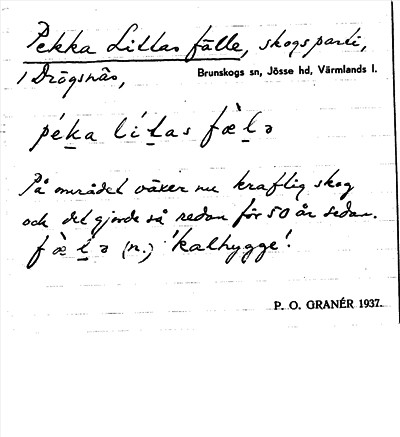 Pekka Littas fälle, skogsparti,
i Drögsnäs,
Brunskogs sn, Jösse hd, Värmlands l.
péka lítas fæ̀lə
På området växer nu kraftig skog
och det gjorde så redan för 50 år sedan.
fæ̀lə (n.) 'kalhygge'.
P. O. GRANÉR 1937.